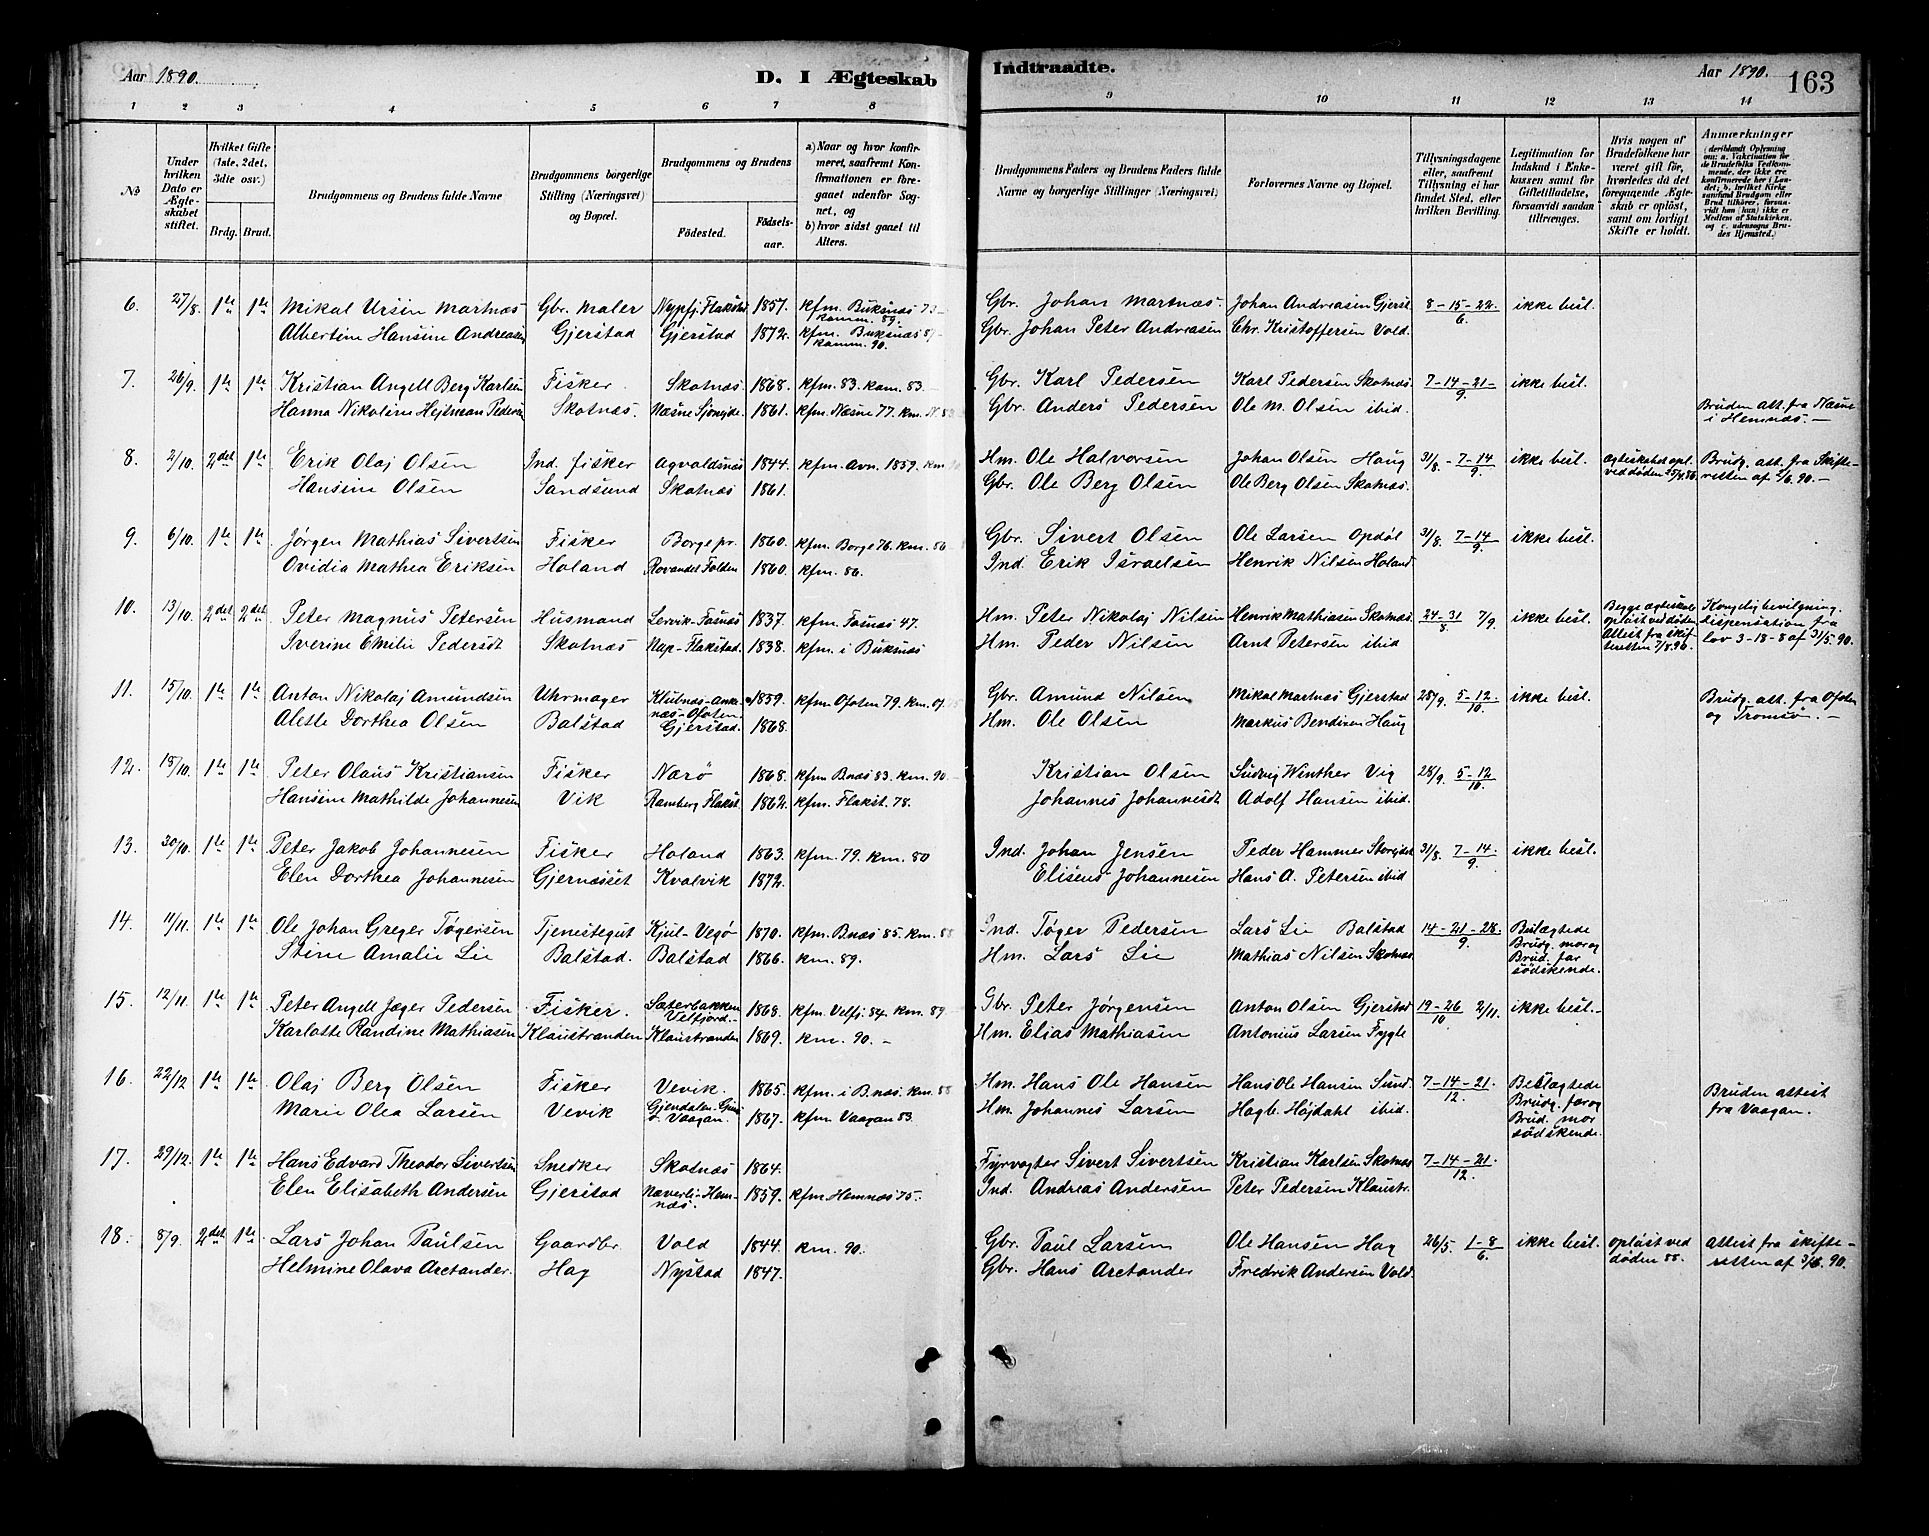 Aar 1890.
D. I Ægteskab
Indtraadte.
Aar 1890.
163
1 2 3 4 5 6 7 8 9 10 11 12 13 14
No
Under hvilken Dato er Ægteskabet stiftet.
Hvilket Gifte (1ste, 2det, 3die osv.)
Brdg. Brud.
Brudgommens og Brudens fulde Navne
Brudgommens borgerlige Stilling (Næringsvei) og Bopæl.
Brudgommens og Brudens
Fødested. Fødselsaar.
a) Naar og hvor konfirmeret, saafremt Konfirmationen er foregaaet udenfor Sognet, og
b) hvor sidst gaaet til Alters.
Brudgommens Faders og Brudens Faders fulde Navne og borgerlige Stillinger (Næringsvei)
Forlovernes Navne og Bopæl.
Tillysningsdagene eller, saafremt Tillysning ei har fundet Sted, efter hvilken Bevilling.
Legitimation for Indskud i Enkekassen samt for Giftetilladelse, forsaavidt saadan tiltrenges.
Hvis nogen af Brudefolkene har været gift før, hvorledes da det foregaaende Ægteskab er opløst, samt om lovligt Skifte er holdt.
Anmærkninger (deriblandt Oplysning om: a. Vakcination for de Brudefolks Vedkommende, der ikke ere konfirmerede her i Landet; b. hvilket Kirkesamfund Brudgom eller Brud tilhører, forsaavidt han (hun) ikke er Medlem af Statskirken, og c. udensogns Brudes Hjemsted.)
6. 27/8. 1ste 1ste Mikal Ursin Martnæs Gbr. Maler Nypfj. Flakstad 1857. kfm. Buksnæs 73 komm. 89. Gbr. Johan Martnæs. Johan Andreasen Gjerst. 8-15-22/6. ikke besl.
Albertine Hansine Andreasen Gjerstad Gjerstad 1872. kfm. Buksnæs 87 komm. 90. Gbr. Johan Peter Andreasen Chr. Kristoffersen Vold.
7. 26/9. 1ste 1ste Kristian Angell Berg Karlsen Fisker Skotnæs 1868. kfm. 83. kom. 83. Gbr. Karl Pedersen Karl Pedersen Skotnæs. 7-14-21/9. ikke besl.
Hanna Nikoline Hejtman Pedersen Skotnæs. Næsne 1861. kfm. Næsne 77. km. Gbr. Anders Pedersen Ole M. Olsen ibid. Bruden att. fra Næsne i Hemnæs.
8. 2/10. 2det 1ste Erik Olaj Olsen Ind. fisker Agvaldsnæs 1844. kfm. Avn. 1859. km Hm. Ole Halvorsen Johan Olsen Haug 31/8 - 7-14/9. ikke besl. Ægteskabet opl. ved døden Brudg. att. fra Skifteretten af 90.
Hansine Olsen Sandsund Skotnæs 1861. Gbr. Ole Berg Olsen Ole Berg Olsen Skotnæs.
9. 6/10. 1ste 1ste Jørgen Mathias Sivertsen Fisker Borge pr. 1860. kfm. Borge 76. km. 86 Gbr. Sivert Olsen Ole Larsen Opdøl 31/8. 7-14/9. ikke besl.
Ovidia Mathea Eriksen Holand Folden 1860. kfm. 86. Ind. Erik Israelsen Henrik Nilsen Holand
10. 13/10. 2det 2det Peter Magnus Petersen Husmand Lervik-Fosnæs 1837. kfm. Fosnæs 47. Hm. Peter Nikolaj Nilsen Henrik Mathiasen Skotnæs. 24-31/8 7/9. ikke besl. Begge ægteskaber opløst ved døden Attest fra skifteretten 7/8.90. Kongelig bevilgning. dispensation fra lov 3-18-8 af 31/5.90.
Iverine Emilie Pedersdt Skotnæs Nap-Flakstad. 1838. kfm. i Buksnæs Hm. Peder Nilsen Arnt Petersen ibid
11. 15/10. 1ste 1ste Anton Nikolaj Amundsen Uhrmager Klubnæs-Ankenæs-Ofoten 1859. kfm. Ofoten 79. km. Gbr. Amund Nilsen Mikal Martnæs Gjerstad 28/9. 5-12/10. ikke besl. Brudg. att. fra Ofoten og Tromsø.
Alette Dorthea Olsen Balstad Gjerstad. 1868. Hm. Ole Olsen Markus Bendixen Haug
12. 15/10. 1ste 1ste Peter Olaus Kristiansen Fisker Nærø 1868. kfm Bnæs 83. km. 90. Kristian Olsen Ludvig Winther Vig 28/9. 5-12/10.
Hansine Mathilde Johannesen Vik Ramberg Flakst. 1862. kfm. Flakst. 78. Johannes Johannesdt Adolf Hansen ibid.
13. 30/10. 1ste 1ste Peter Jakob Johannesen Fisker Holand 1863. kfm. 79. km. 80 Ind. Johan Jensen Peder Hammer 31/8. 7-14/9. ikke besl.
Elen Dorthea Johannesen Gjernæsset Kvalvik 1872. Eliseus Johannesen Hans A. Petersen ibid
14. 11/11. 1ste 1ste Ole Johan Greger Tøgersen Tjenestegut Kjul-Vegø 1870. kfm. Bnæs 85. km. 88 Ind. Tøger Pedersen Lars Lie Balstad 14-21-28/9. Beslægtede Brudg. mor og Brud. far sødskende.
Stine Amalie Lie Balstad. Balstad 1866. km. 89. Hm. Lars Lie Mathias Nilsen Skotnæs
15. 12/11. 1ste 1ste Peter Angell Jæger Pedersen Fisker. Sæterbakken Velfjord. 1868. kfm. Velfj. 84. km. 89 Gbr. Peter Jørgensen Anton Olsen Gjerstad 19-26/10 2/11. ikke besl.
Karlotte Randine Mathiasen Klaustranden Klaustranden 1869. km. 90. Hm. Elias Mathiasen Antonius Larsen Fygle
16. 22/12 1ste 1ste Olaj Berg Olsen Fisker Vevik. 1865. kfm. i B.næs. km. 88 Hm. Hans Ole Hansen Hans Ole Hansen Sund. 7-14-21/12. Beslægtede Brudg. far og Brud. mor sødskende.
Marie Olea Larsen Vevik Vaagan. 1867. kfm Vaagan 83. Hm. Johannes Larsen Hagb. Højdahl ibid. Bruden attest fra Vaagan.
17. 29/12. 1ste 1ste Hans Edvard Theodor Sivertsen Snedker Skotnæs 1864. Fyrvogter Sivert Sivertsen Kristian Karlsen Skotnæs 7-14-21/12.
Elen Elisabeth Andersen Gjerstad Næverli-Hemnæs. 1859. kfm. Hemnæs 75. Ind. Andreas Andersen Peter Pedersen Klaustr.
18. 8/9. 2det 1ste Lars Johan Paulsen Gaardbr Vold 1844. km. 90. Gbr. Paul Larsen Ole Hansen Hag 26/5. 1-8/6. ikke besl. opløst ved døden 88. attest fra skifteretten af 90.
Helmine Olava Arctander. Hag Nystad 1847. Gbr. Hans Arctander Fredrik Andersen Vold.